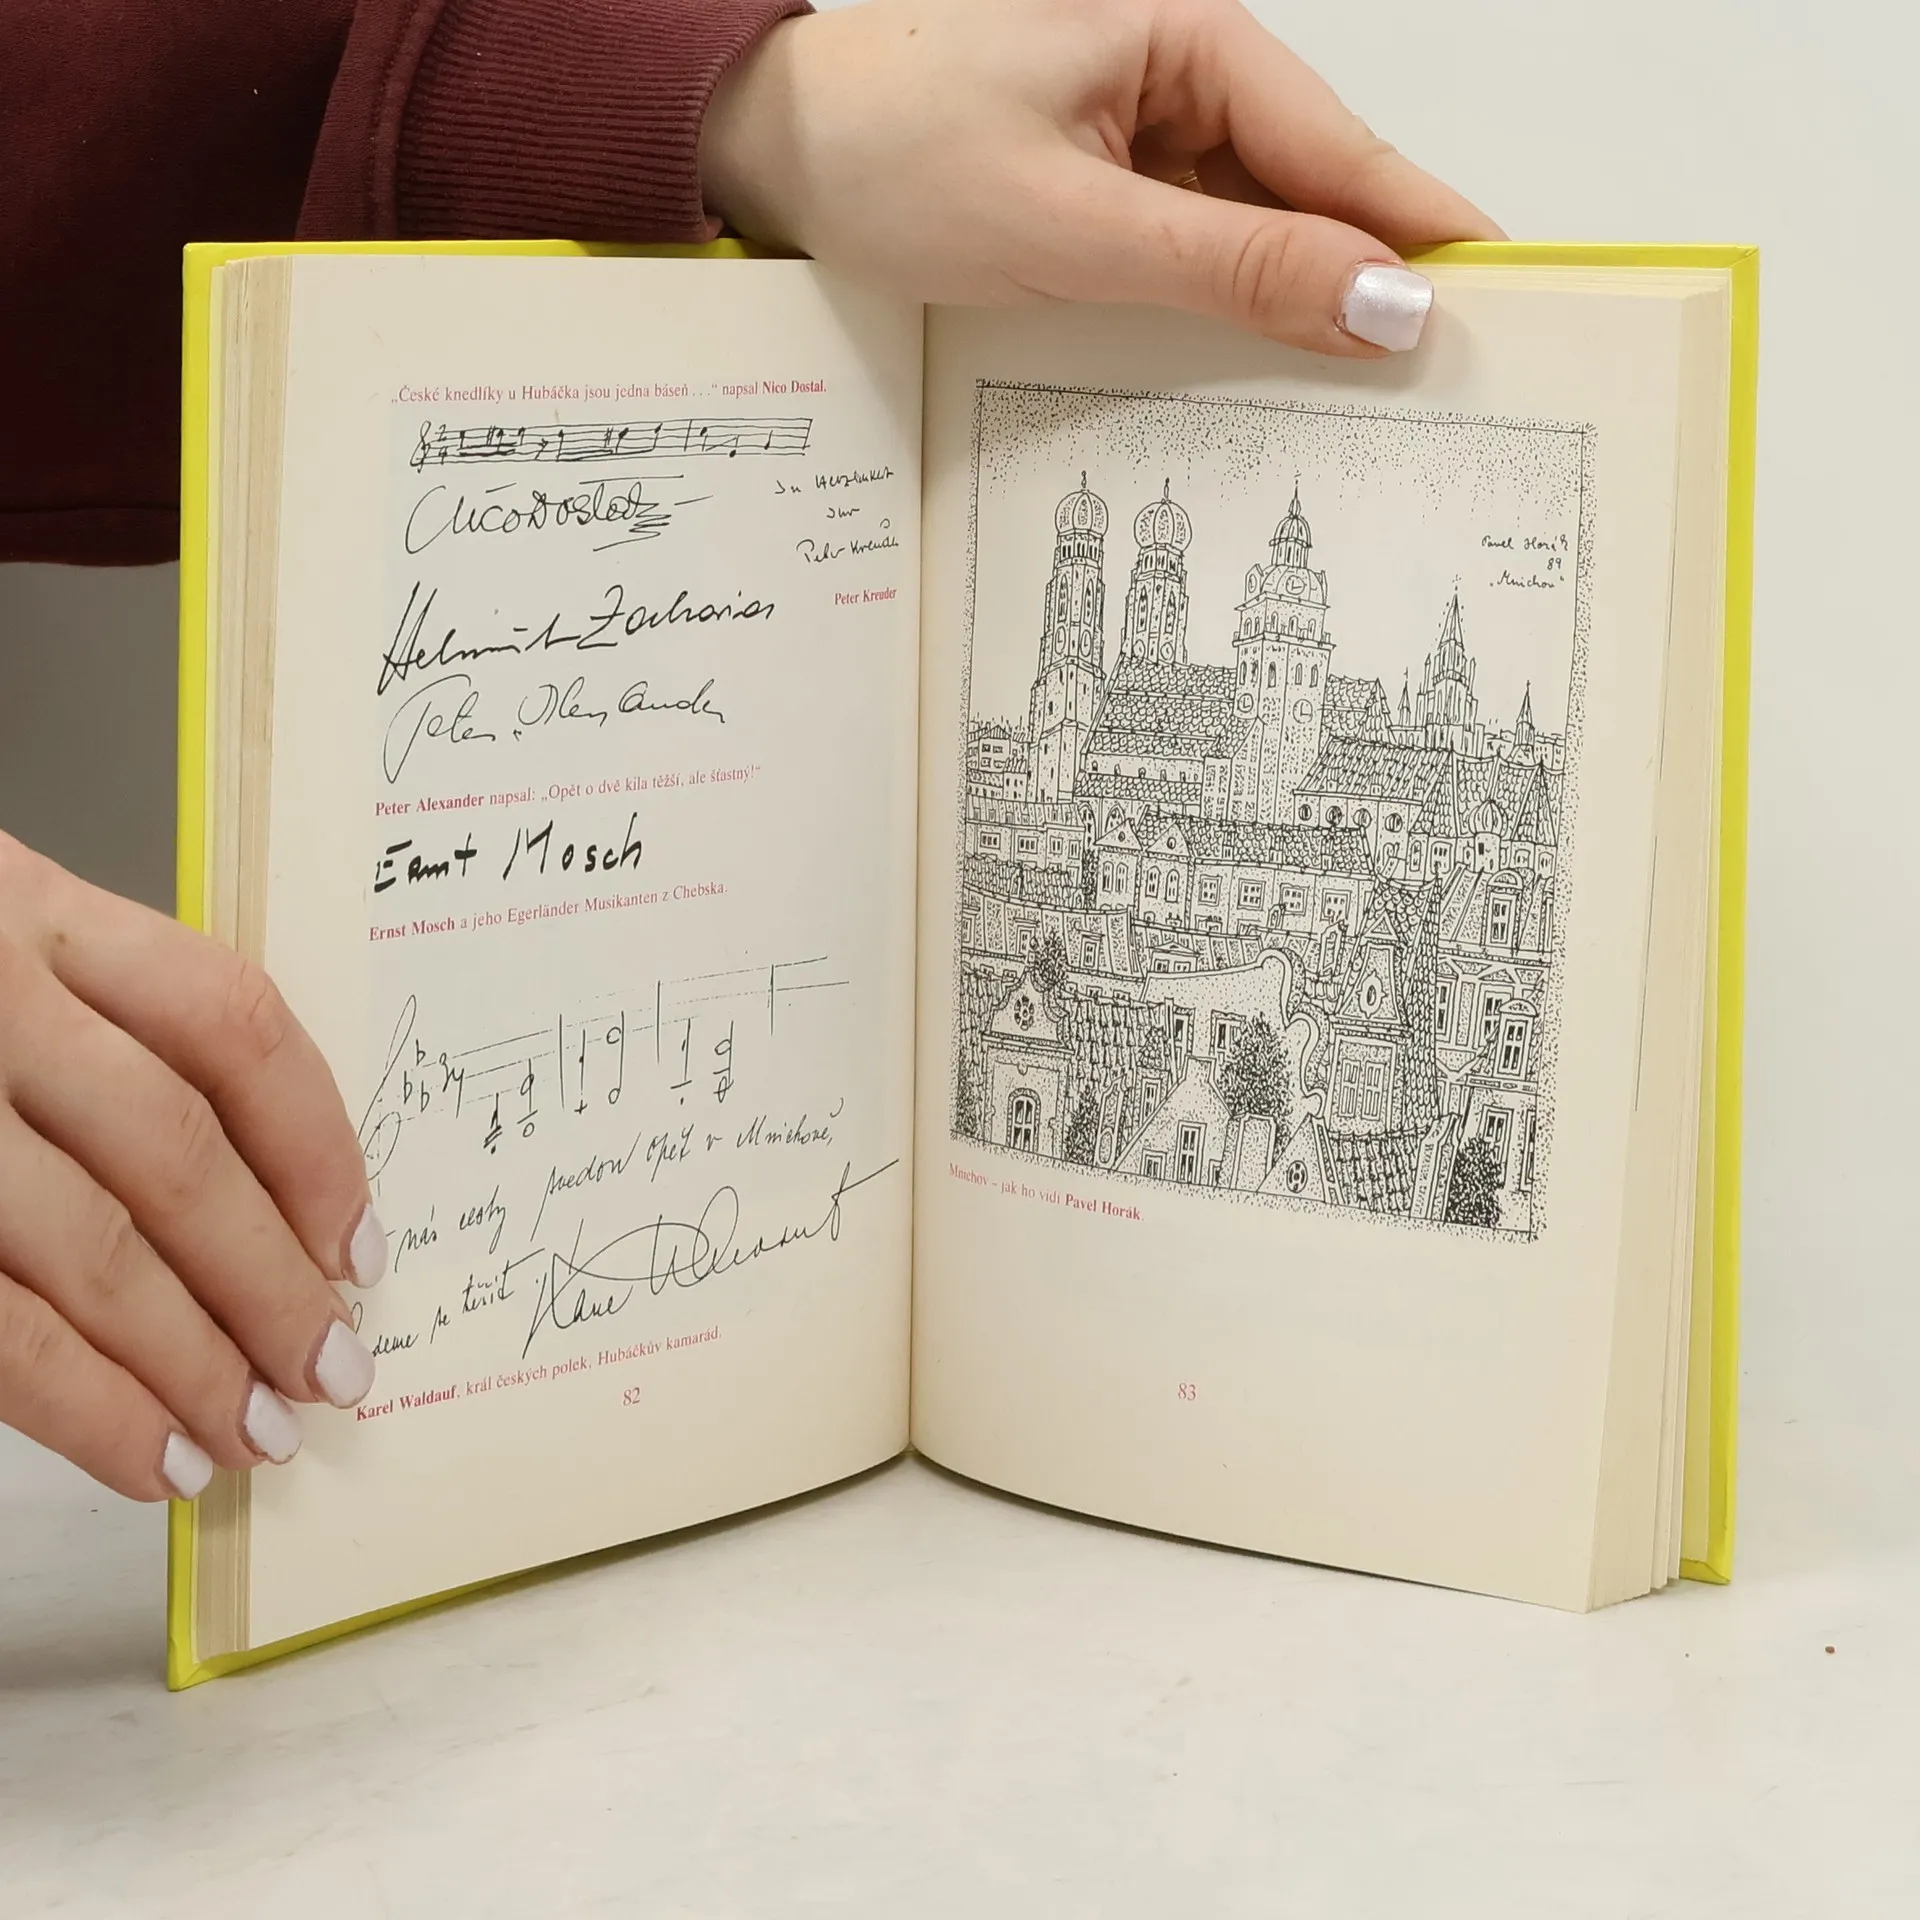 „České knedlíky u Hubáčka jsou jedna báseň . . .“ napsal Nico Dostal.
Nico Dostal
In Herzlichkeit
Ihr
Peter Kreuder
Peter Kreuder
Helmut Zacharias
Peter Alexander
Peter Alexander napsal: „Opět o dvě kila těžší, ale šťastný!“
Ernst Mosch
Ernst Mosch a jeho Egerländer Musikanten z Chebska.
nás cesty svedou opět v Mnichově,
deme se těšit
Karel Waldauf
Karel Waldauf, král českých polek, Hubáčkův kamarád.
82
Pavel Horák
89
„Mnichov“
Mnichov – jak ho vidí Pavel Horák.
83